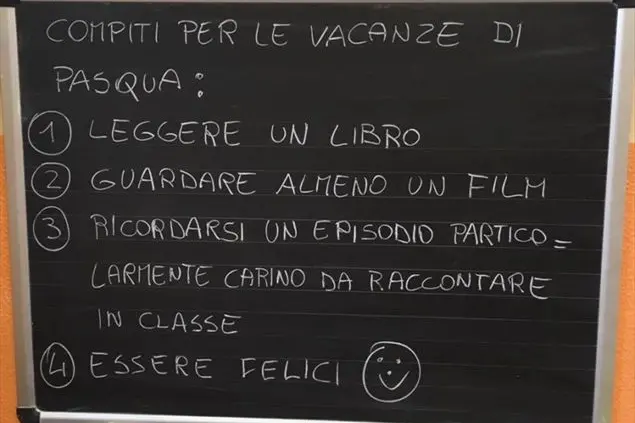 COMPITI PER LE VACANZE DI
PASQUA:
1 LEGGERE UN LIBRO
2 GUARDARE ALMENO UN FILM
3 RICORDARSI UN EPISODIO PARTICO=
LARMENTE CARINO DA RACCONTARE
IN CLASSE
4 ESSERE FELICI